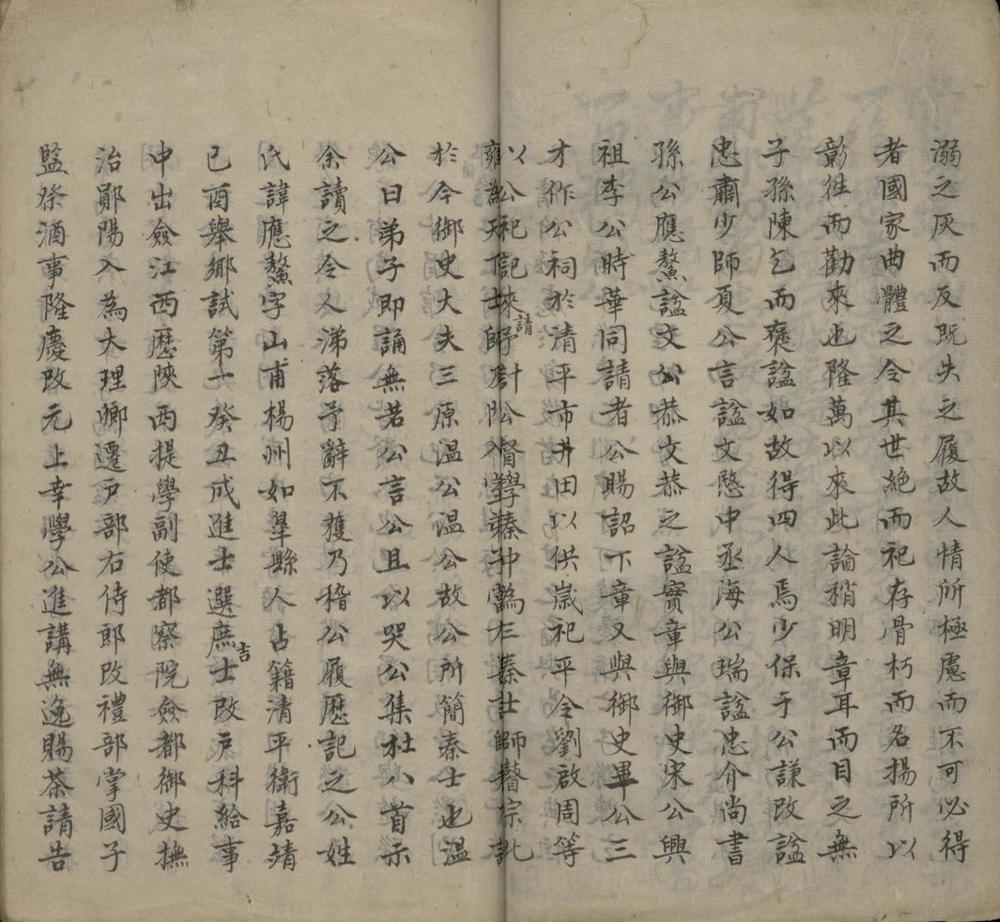 溺之厌而反既失之履故人情所極慮而不可必得
者國家曲體之令其世絕而祀存骨朽而名揚所以
彰徃而勸來也隆萬以來此論稍明章耳而目之無
子孫陳乞而褒諡如故得四人焉少保于公謙改諡
忠肅少師夏公言諡文愍中丞海公瑞諡忠介尚書
孫公應鰲諡文恭文恭之諡實章與御史宋公興
祖李公時華同請者公賜詔下章又與御史畢公三
才作公祠於清平市井田以供嵗祀平令劉啟周等
以公祀記請
於今御史大夫三原温公温公故公所簡秦士也温
公曰弟子即誦無若公言公且以哭公集杜八首示
余讀之令人涕落予辭不獲乃稽公履歷記之公姓
氏諱應鰲字山甫楊州如臯縣人占籍清平衛嘉靖
己酉舉鄉試第一癸丑成進士選庶吉士改户科給事
中出僉江西歷陝西提學副使都察院僉都御史撫
治鄖陽入為大理卿遷户部右侍郎改禮部掌國子
監祭酒事隆慶改元上幸學公進講無逸賜茶請告